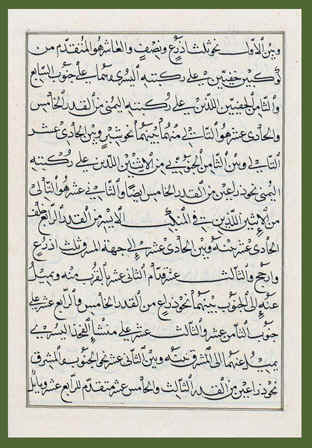 وبين الاول نحو ثلث اذرع ونصف والعاشر هو المتقدم من
خفيين على ركبته اليسرى وهما على جنوب السابع
والثامن الخفيين اللذين على ركبته اليمنى من القدر الخامس
والحادى عشر هو التالى منهما بينهما نحو شبر وبين الحادى عشر
وبين الثامن الجنوبى من الاثنين اللذين على ركبته
اليمنى نحو ذراعين من القدر الخامس ايضا والثانى عشر هو التالى
من الاثنين اللذين فى الايسر من القدر الرابع خلف
الحادى عشر منه وبين الحادى عشر الى جهة ثلث اذرع
والثالث عشر قدام الثانى عشر بالقرب منه ويميل
عنه الى الجنوب بينهما نحو ذراع من القدر الخامس والرابع عشر على
جنوب الثامن عشر والثالث عشر على منشأ الفخذ اليسرى
يميل عنهما الى المشرق بينه وبين الثانى عشر نحو الجنوب والمشرق
نحو ذراعين من القدر الثالث والخامس عشر متقدم للرابع عشر